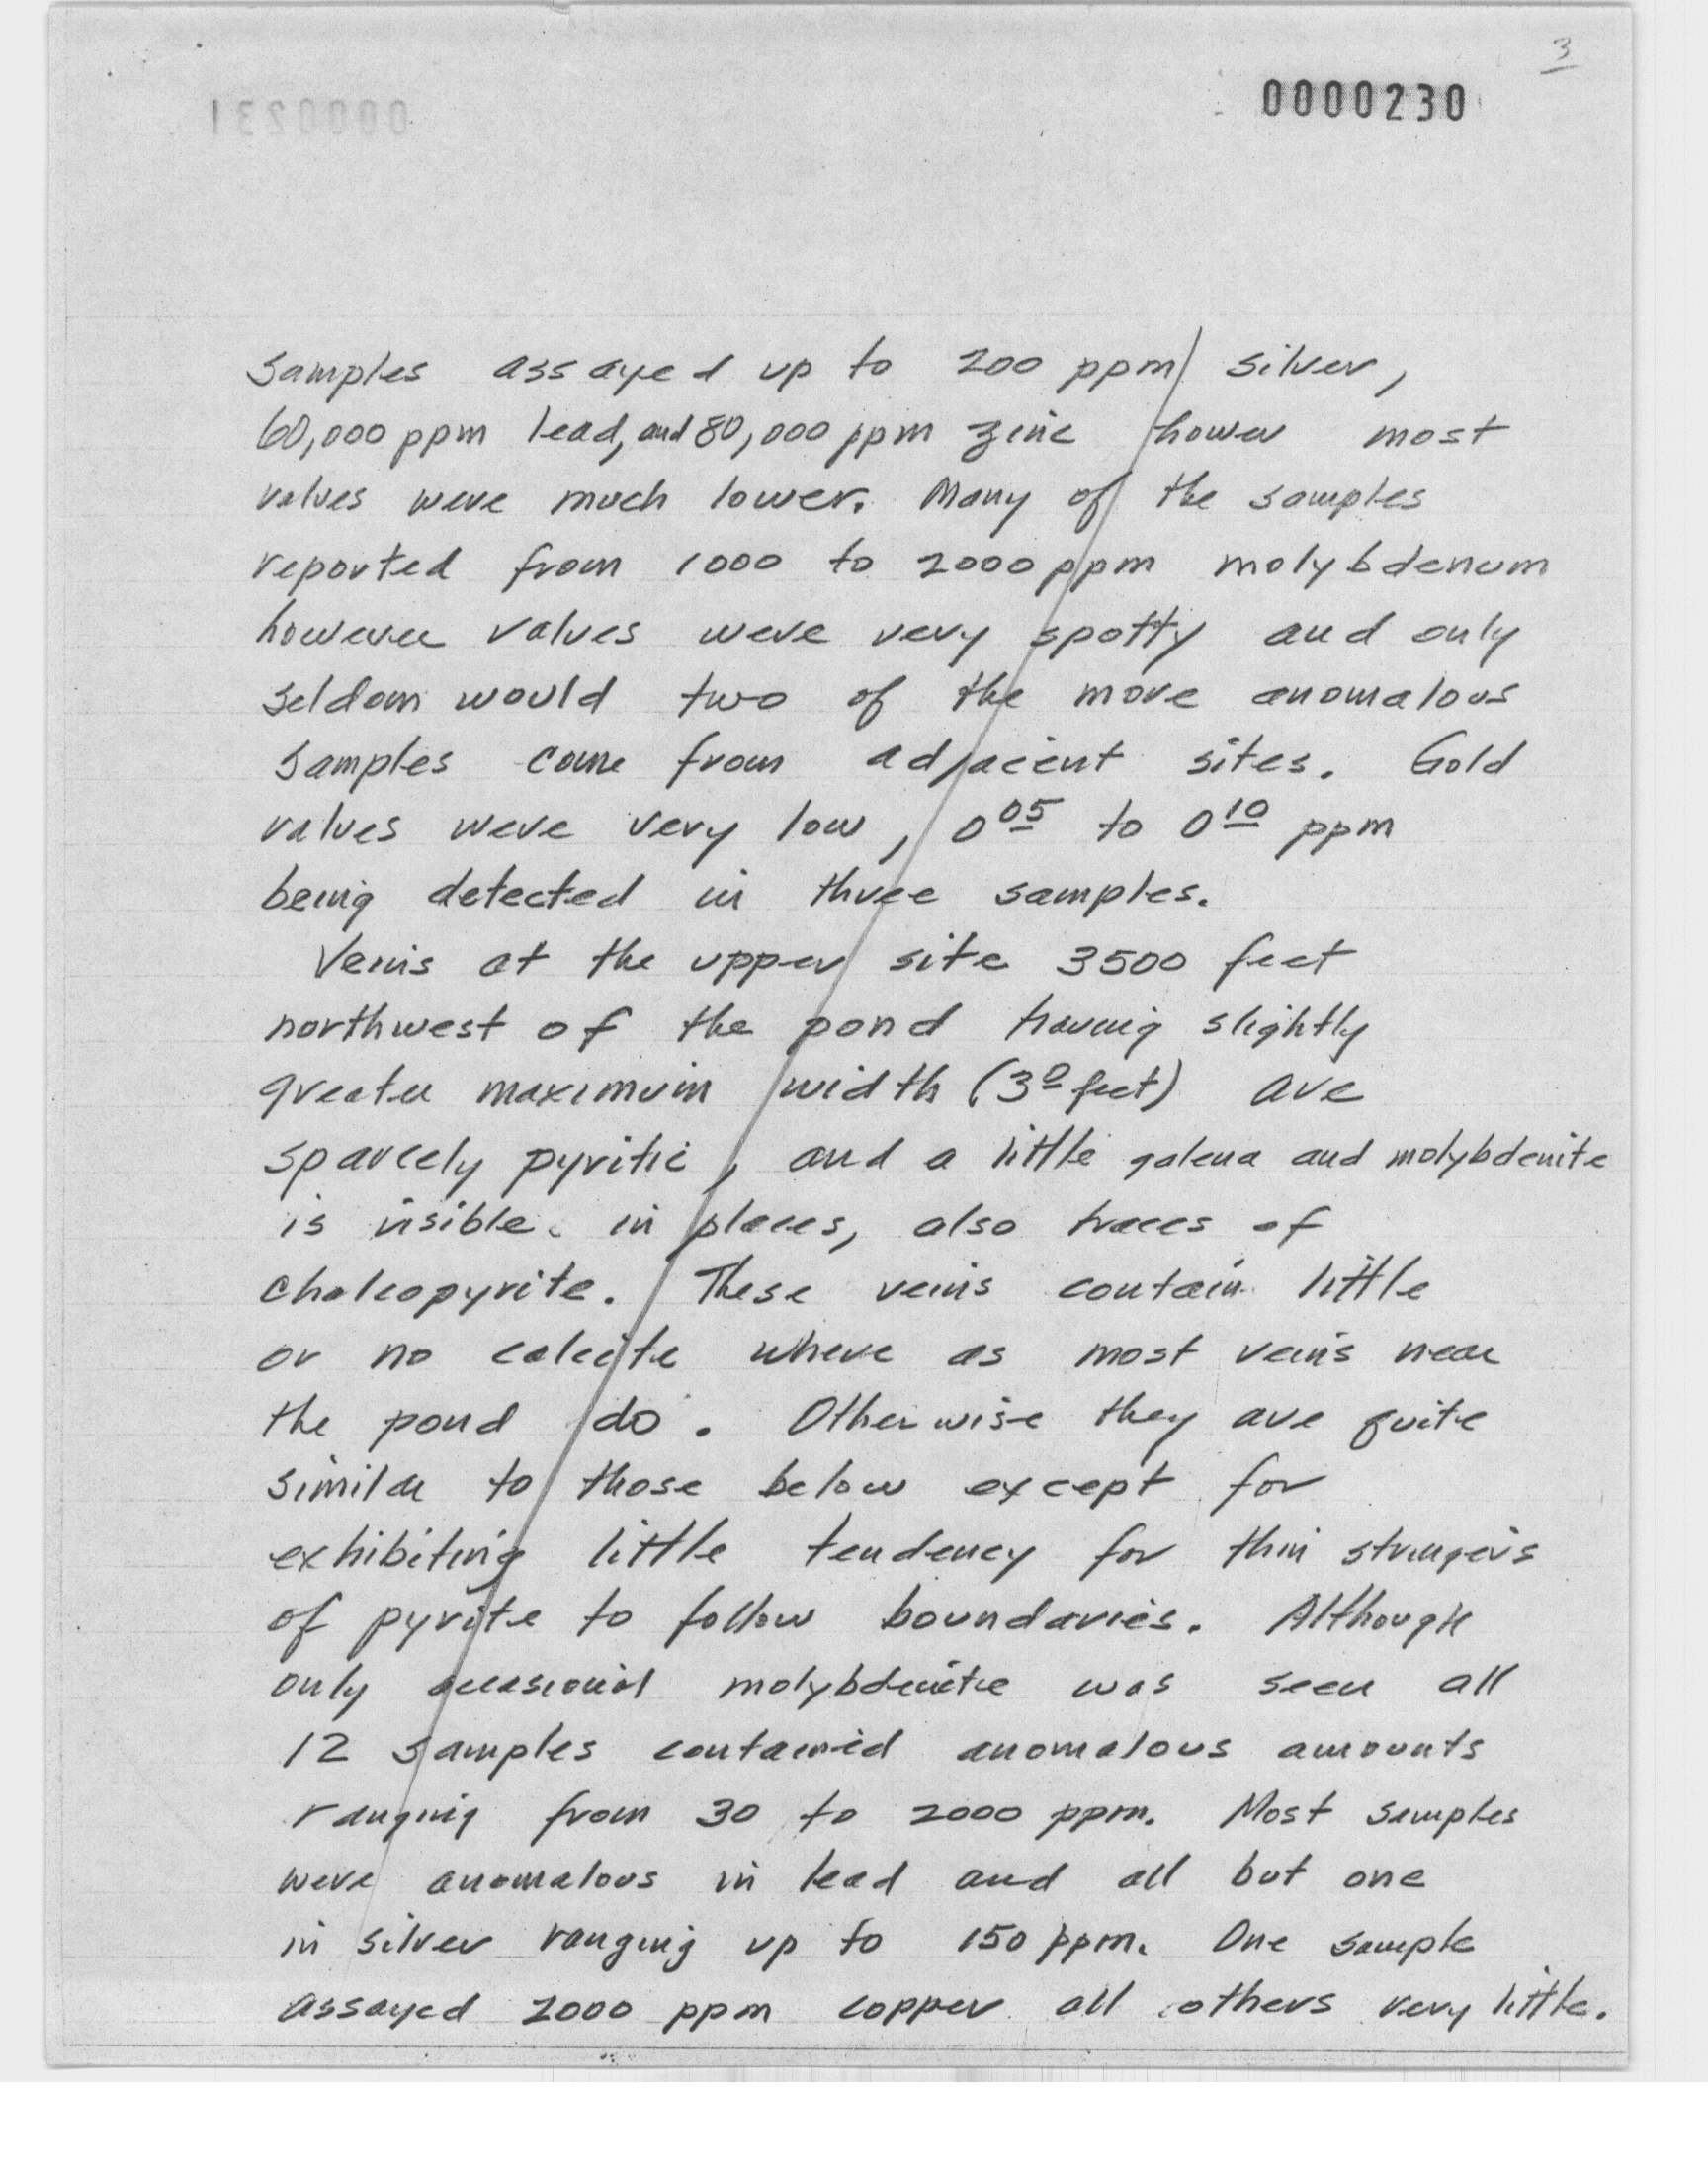 3
0000230
0000231
samples assayed up to 200 ppm silver,
60,000 ppm lead, and 80,000 ppm zinc howev most
values were much lower. Many of the samples
reported from 1000 to 2000 ppm molybdenum
however values were very spotty and only
seldom would two of the more anomalous
samples come from adjacent sites. Gold
values were very low, 0 05 to 0 10 ppm
being detected in three samples.
Veins at the upper site 3500 feet
northwest of the pond having slightly
greater maximum width (3 0 feet) are
sparcely pyritic, and a little galena and molybdenite
is visible in places, also traces of
chalcopyrite. These veins contain little
or no calcite where as most veins near
the pond do. Otherwise they are quite
similar to those below except for
exhibiting little tendency for thin stringers
of pyrite to follow boundaries. Although
only occasional molybdenite was seen all
12 samples contained anomalous amounts
ranging from 30 to 2000 ppm. Most samples
were anomalous in lead and all but one
in silver ranging up to 150 ppm. One sample
assayed 2000 ppm copper all others very little.